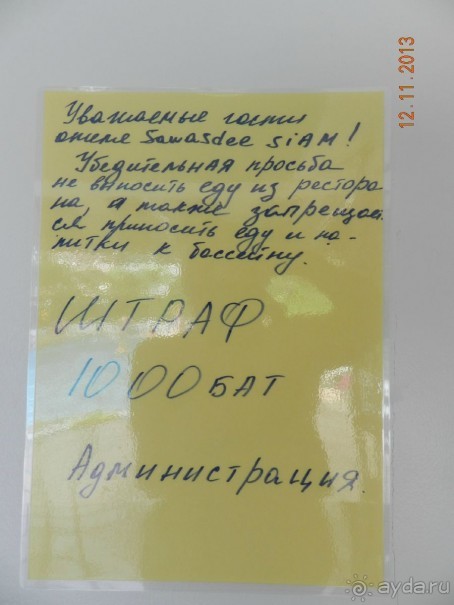 Уважаемые гости
отеля Sawasdee SiAM!
Убедительная просьба
не выносить еду из рестора
на, а также запрещает
ся приносить еду и на-
питки к бассейну.
ШТРАФ
1000 БАТ
Администрация.
12.11.2013
ayda.ru